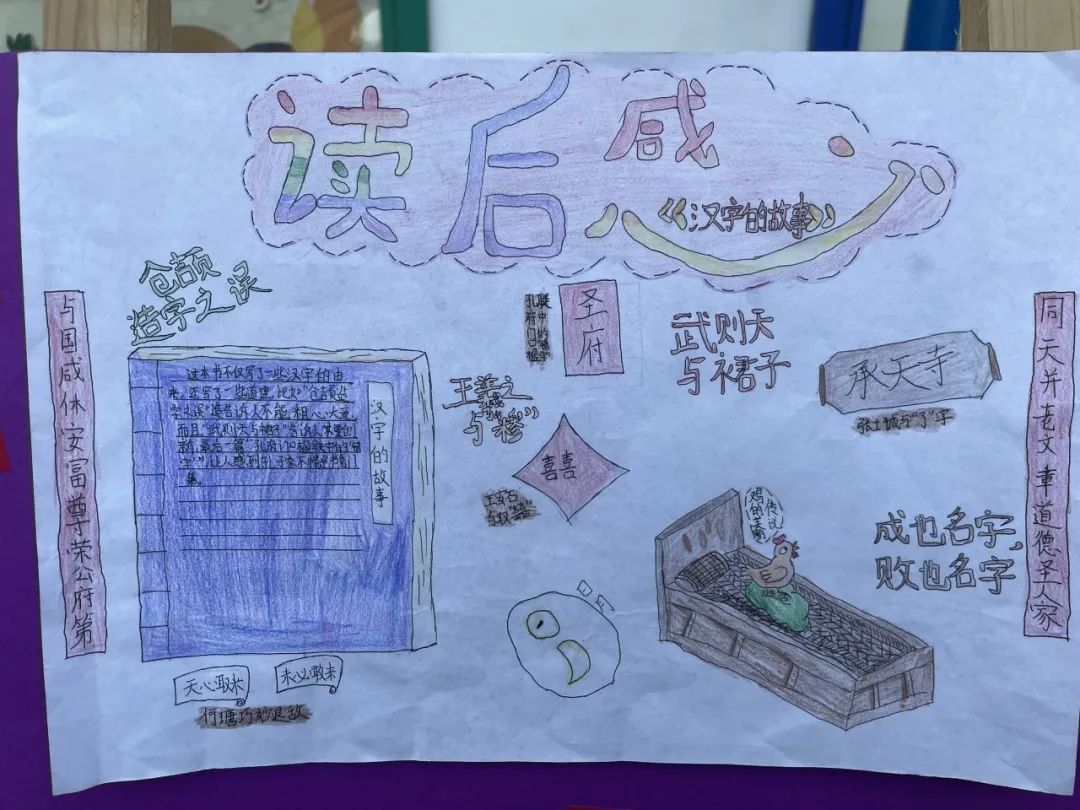 读后感
《汉字的故事》
仓颉
造字之误
与国咸休安富尊荣公府第
这本书不仅写了一些汉字的由
来，还写了一些道理，比如"仓颉造
字之误"撞告诉人不能粗心大意，
而且"武则天与裙子"告诉人不要创
新，最后一篇"孔府门口楹联中的"错
字""，让人感到孔子
汉字的故事
天心取米
未必敢来
何瑭巧妙退敌
孔府门口楹
联中的错字
圣府
王羲之
与"穆"
囍
王安石
武则天
与裙子
承天寺
张士诚与"了"字
鸡的美丽传说
成也名字，
败也名字
同天并老文章道德圣人家